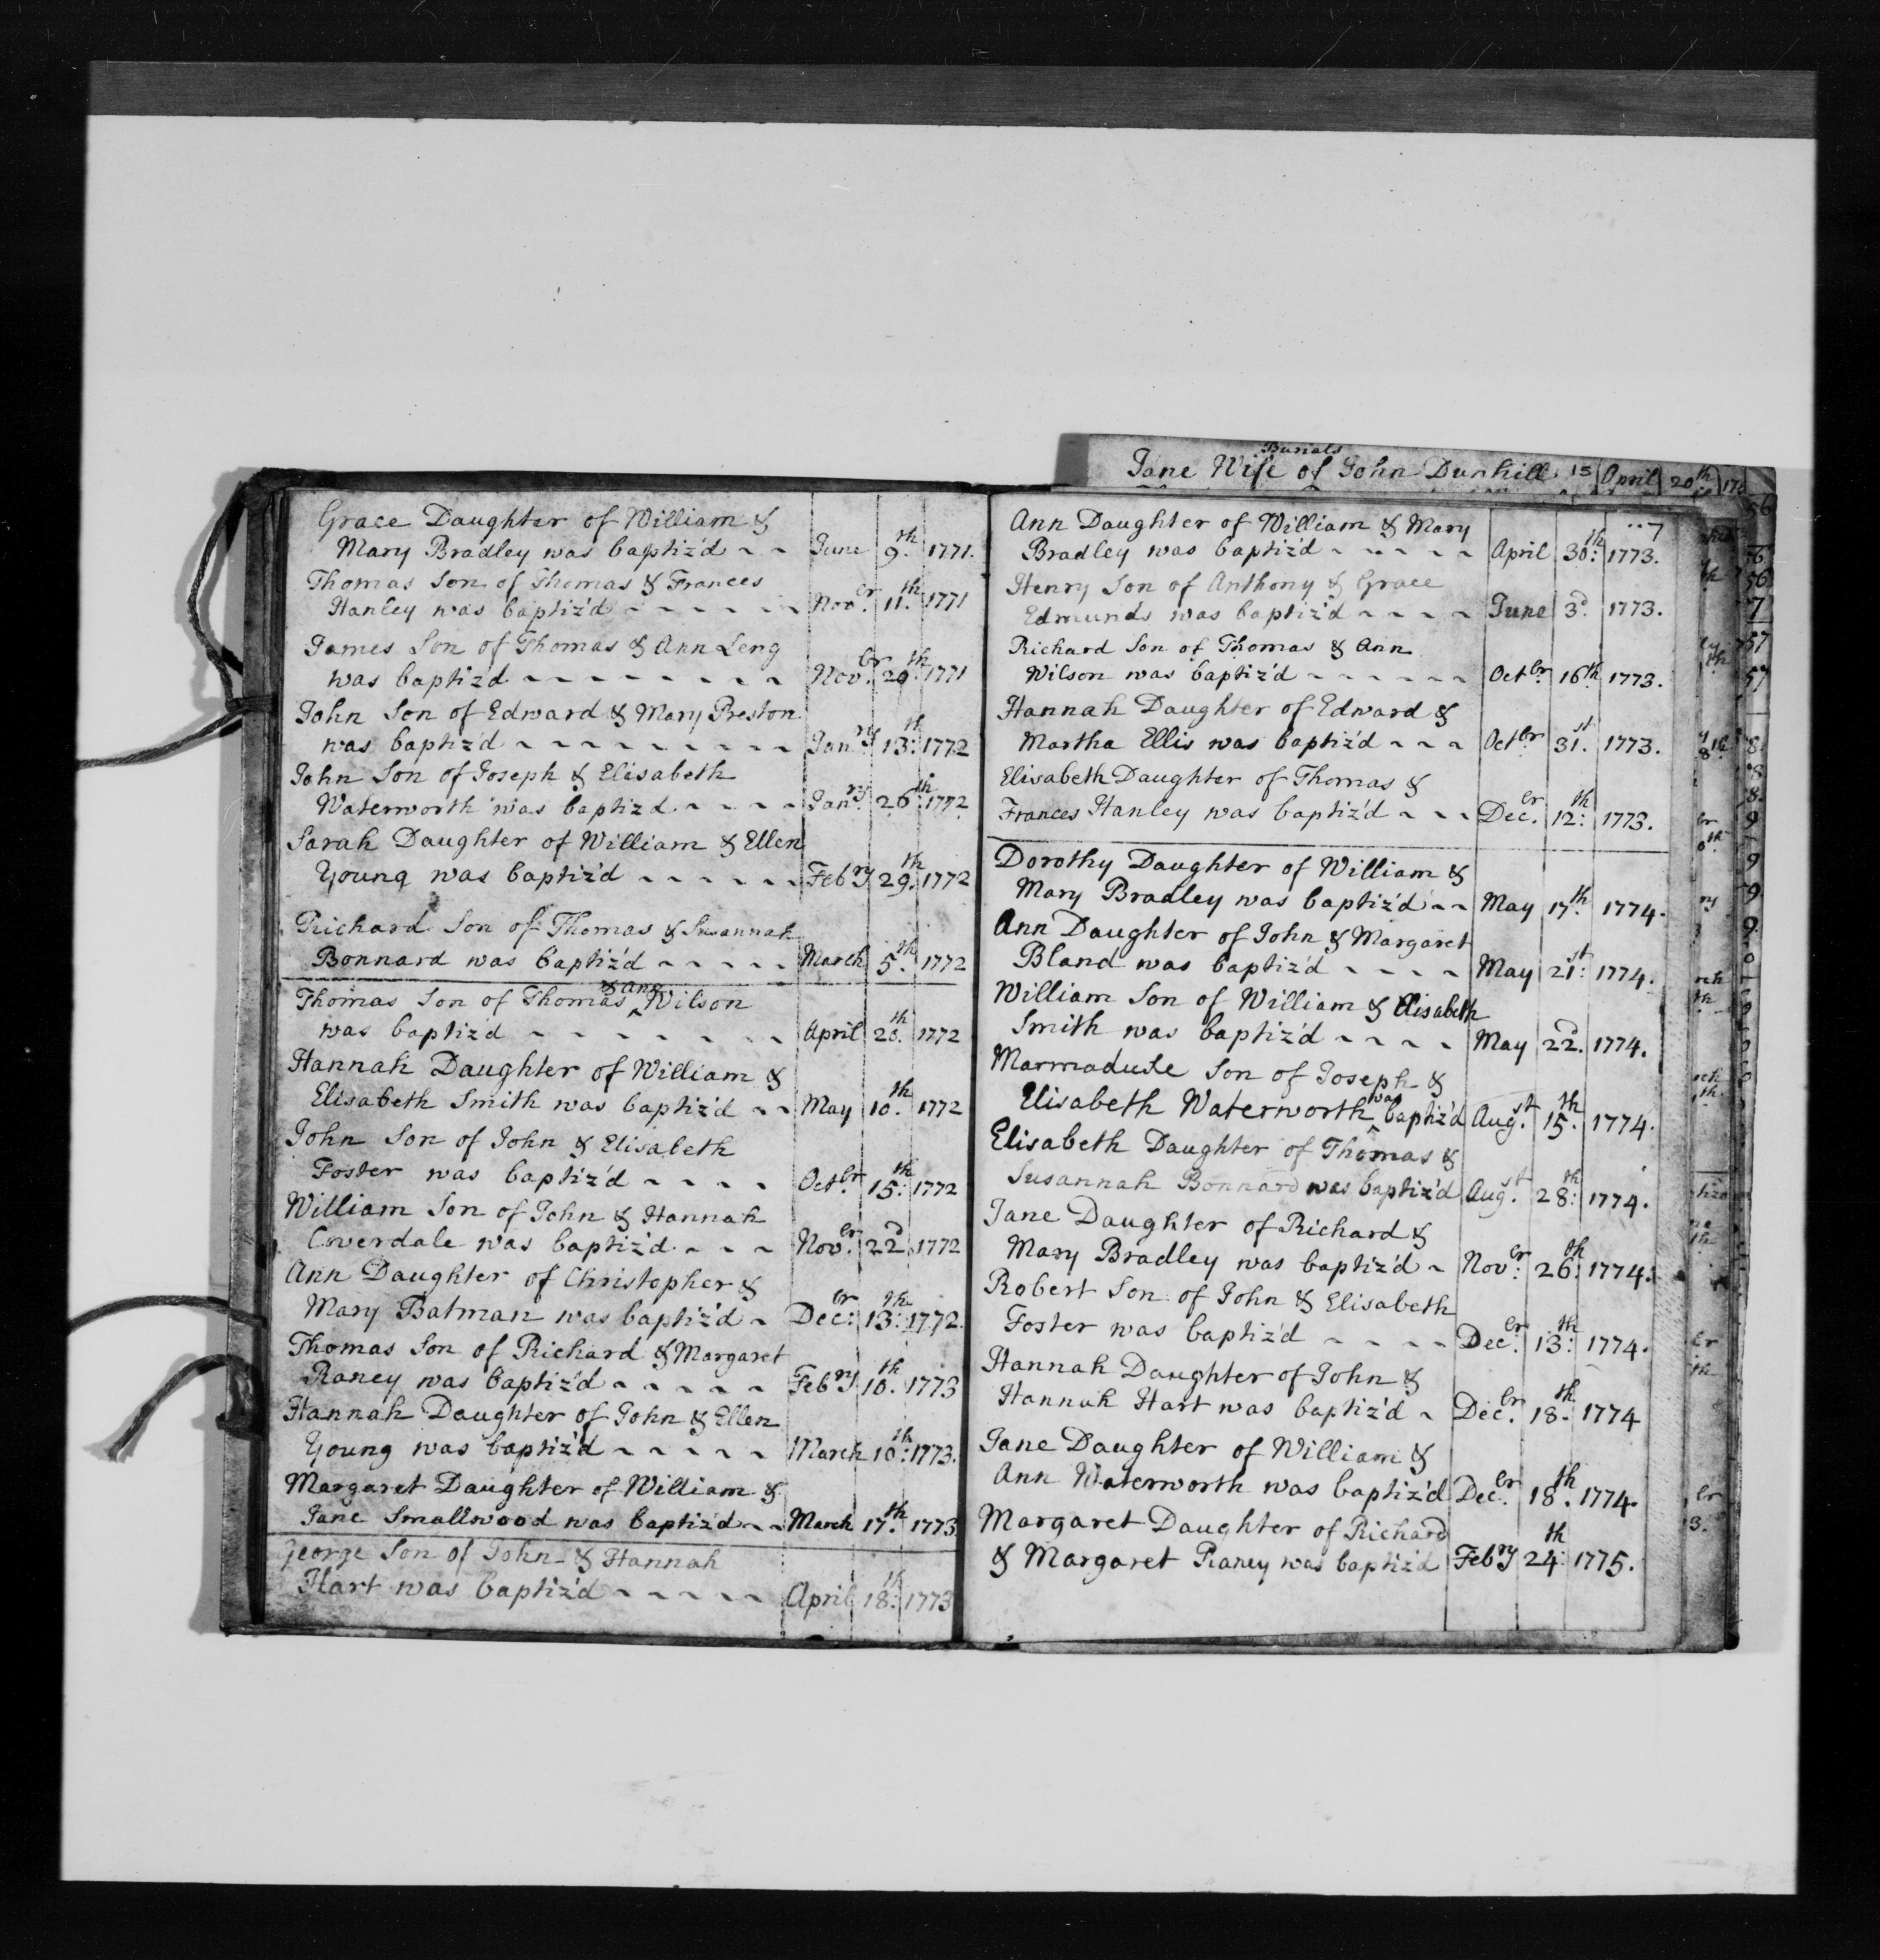 Burials
Jane Wife of John Dunhill 15 April 20th 176
Grace Daughter of William &
Mary Bradley was baptiz'd June 9th. 1771.
Thomas Son of Thomas & Frances
Hanley was baptiz'd Novbr. 11th. 1771
James Son of Thomas & Ann Leng
was baptiz'd Novbr. 29th 1771
John Son of Edward & Mary Preston
was baptiz'd Janry 13th: 1772
John Son of Joseph & Elisabeth
Waterworth was baptiz'd Janry. 26th. 1772
Sarah Daughter of William & Ellen
Young was baptiz'd Febry 29th. 1772
Richard Son of Thomas & Susannah
Bonnard was baptiz'd March 5th. 1772
Thomas Son of Thomas & Ann Wilson
was baptiz'd April 20th. 1772
Hannah Daughter of William &
Elisabeth Smith was baptiz'd May 10th. 1772
John Son of John & Elisabeth
Foster was baptiz'd Octbr. 15th: 1772
William Son of John & Hannah
Coverdale was baptiz'd Novbr. 22d. 1772
Ann Daughter of Christopher &
Mary Batman was baptiz'd Decbr: 13th: 1772.
Thomas Son of Richard & Margaret
Raney was baptiz'd Febry 10th. 1773
Hannah Daughter of John & Ellen
Young was baptiz'd March 10th: 1773.
Margaret Daughter of William &
Jane Smallwood was baptiz'd March 17th. 1773
George Son of John & Hannah
Hart was baptiz'd April 18th: 1773
7
Ann Daughter of William & Mary
Bradley was baptiz'd April 30th: 1773.
Henry Son of Anthony & Grace
Edmunds was baptiz'd June 3d. 1773.
Richard Son of Thomas & Ann
Wilson was baptiz'd Octbr. 16th. 1773.
Hannah Daughter of Edward &
Martha Ellis was baptiz'd Octbr. 31st. 1773.
Elisabeth Daughter of Thomas &
Frances Hanley was baptiz'd Decbr. 12th: 1773.
Dorothy Daughter of William &
Mary Bradley was baptiz'd May 17th. 1774.
Ann Daughter of John & Margaret
Bland was baptiz'd May 21st: 1774.
William Son of William & Elisabeth
Smith was baptiz'd May 22d. 1774.
Marmaduke Son of Joseph &
Elisabeth Waterworth was baptiz'd Augst. 15th. 1774.
Elisabeth Daughter of Thomas &
Susannah Bonnard was baptiz'd Augst. 28th: 1774.
Jane Daughter of Richard &
Mary Bradley was baptiz'd Novbr: 26th: 1774.
Robert Son of John & Elisabeth
Foster was baptiz'd Decbr. 13th: 1774.
Hannah Daughter of John &
Hannah Hart was baptiz'd Decbr. 18th: 1774
Jane Daughter of William &
Ann Waterworth was baptiz'd Decbr. 18th. 1774.
Margaret Daughter of Richard
& Margaret Raney was baptiz'd Febry 24th 1775.